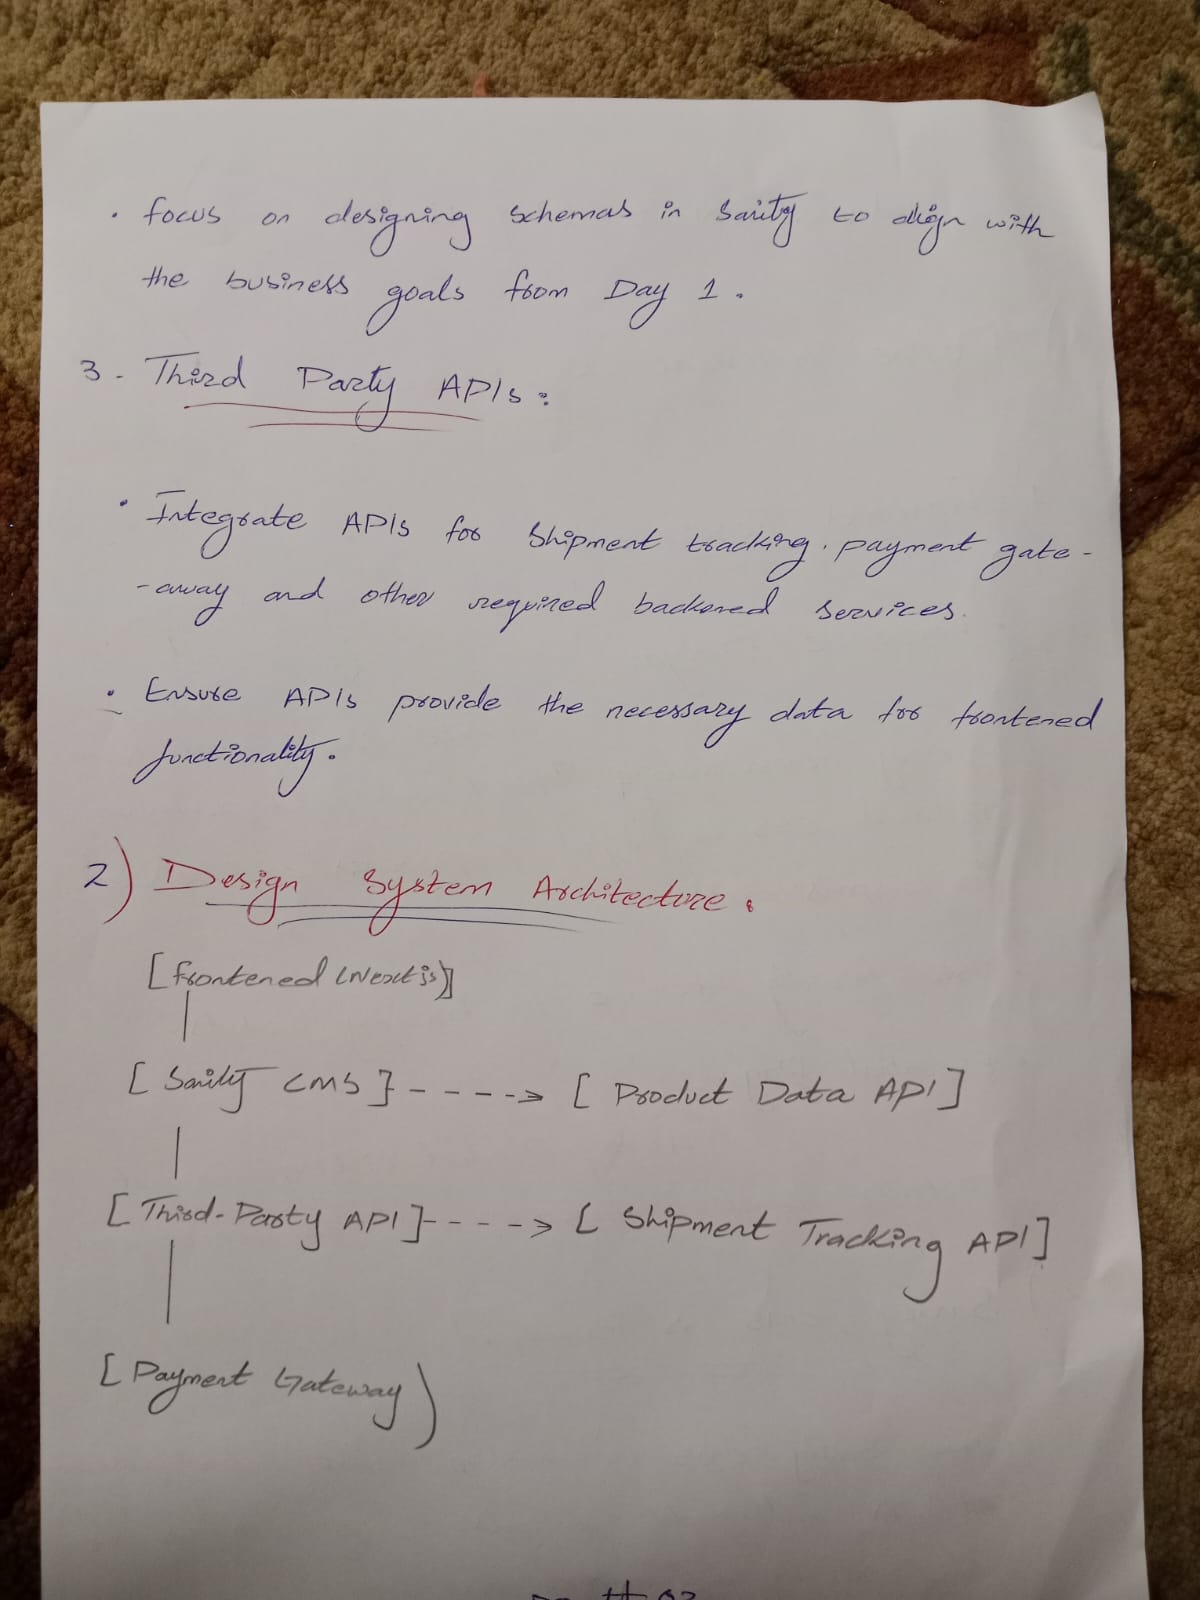 • focus on designing schemas in Sanity to align with
the business goals from Day 1.
3- Third Party APIs:
• Integrate APIs for Shipment tracking, payment gate-
-away and other required backened services.
• Ensure APIs provide the necessary data for frontened
functionality.
2) Design System Architecture:
[frontened (Next js)]
[Sanity CMS] - - - -> [Product Data API]
[Third-Party API] - - - -> [Shipment Tracking API]
[Payment Gateway)